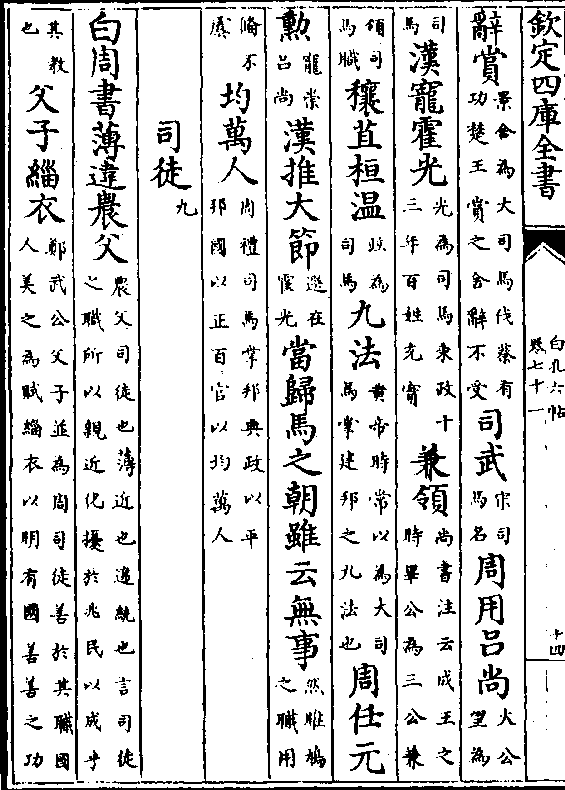 欽定四庫全書 白孔六帖 卷七十一 十四
辭賞景舍為大司馬伐蔡有功楚王賞之舍辭不受司武宋司馬名周用呂尚太公望為
司馬漢寵霍光光為司馬秉政十三年百姓充實兼領尚書注云成王之時畢公為三公兼
領司馬職穰苴桓温政為司馬九法黄帝時常以為大司馬掌建邦之九法也周仕元
勲寵崇呂尚漢推大節選在霍光當歸馬之朝雖云無事然雎鳩之職用
脩不廢均萬人周禮司馬掌邦典政以平邦國以正百官以均萬人
司徒九
白周書薄違農父農父司徒也薄近也違統也言司徒之職所以親近化擾於兆民以成乎
其敎也父子緇衣鄭武公父子並為周司徒善於其職國人美之為賦緇衣以明有國善善之功